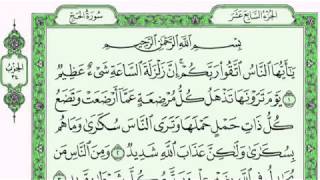 الجُزْءُ السَّابِعَ عَشَرَ
سُورَةُ الحَجِّ
الحِزْب
٣٤
بِسْمِ ٱللَّهِ ٱلرَّحْمَٰنِ ٱلرَّحِيمِ
يَٰٓأَيُّهَا ٱلنَّاسُ ٱتَّقُوا۟ رَبَّكُمْ إِنَّ زَلْزَلَةَ ٱلسَّاعَةِ شَىْءٌ عَظِيمٌ
١ يَوْمَ تَرَوْنَهَا تَذْهَلُ كُلُّ مُرْضِعَةٍ عَمَّآ أَرْضَعَتْ وَتَضَعُ
كُلُّ ذَاتِ حَمْلٍ حَمْلَهَا وَتَرَى ٱلنَّاسَ سُكَٰرَىٰ وَمَا هُم
بِسُكَٰرَىٰ وَلَٰكِنَّ عَذَابَ ٱللَّهِ شَدِيدٌ ٢ وَمِنَ ٱلنَّاسِ مَن